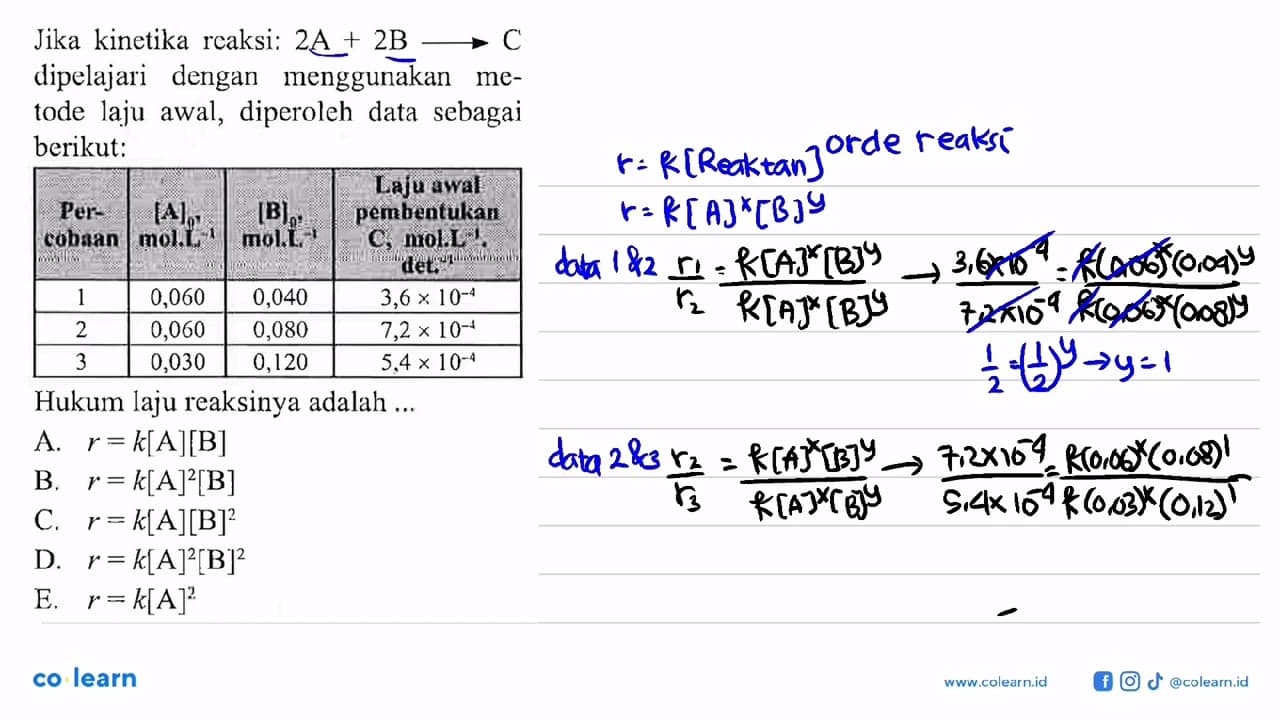 Jika kinetika reaksi: 2A + 2B ⟶ C
dipelajari dengan menggunakan me-
tode laju awal, diperoleh data sebagai
berikut:
Per-cobaan | [A]₀, mol.L⁻¹ | [B]₀, mol.L⁻¹ | Laju awal pembentukan C, mol.L⁻¹.det.⁻¹
1 | 0,060 | 0,040 | 3,6 × 10⁻⁴
2 | 0,060 | 0,080 | 7,2 × 10⁻⁴
3 | 0,030 | 0,120 | 5,4 × 10⁻⁴
Hukum laju reaksinya adalah ...
A. r = k[A][B]
B. r = k[A]²[B]
C. r = k[A][B]²
D. r = k[A]²[B]²
E. r = k[A]²
r = k[Reaktan]^orde reaksi
r = k[A]^x[B]^y
data 1&2 r1/r2 = k[A]^x[B]^y / k[A]^x[B]^y → 3,6×10⁻⁴ / 7,2×10⁻⁴ = k(0,06)^x(0,04)^y / k(0,06)^x(0,08)^y
1/2 = (1/2)^y → y = 1
data 2&3 r2/r3 = k[A]^x[B]^y / k[A]^x[B]^y → 7,2×10⁻⁴ / 5,4×10⁻⁴ = k(0,06)^x(0,08)^1 / k(0,03)^x(0,12)^1
co learn
www.colearn.id
@colearn.id